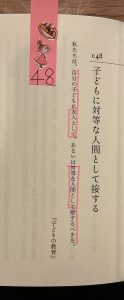 048
子どもに対等な人間として接する
私たちは、自分の子どもに友人として、あるいは対等な人間として接するべきだ。
『子どもの教育』
48